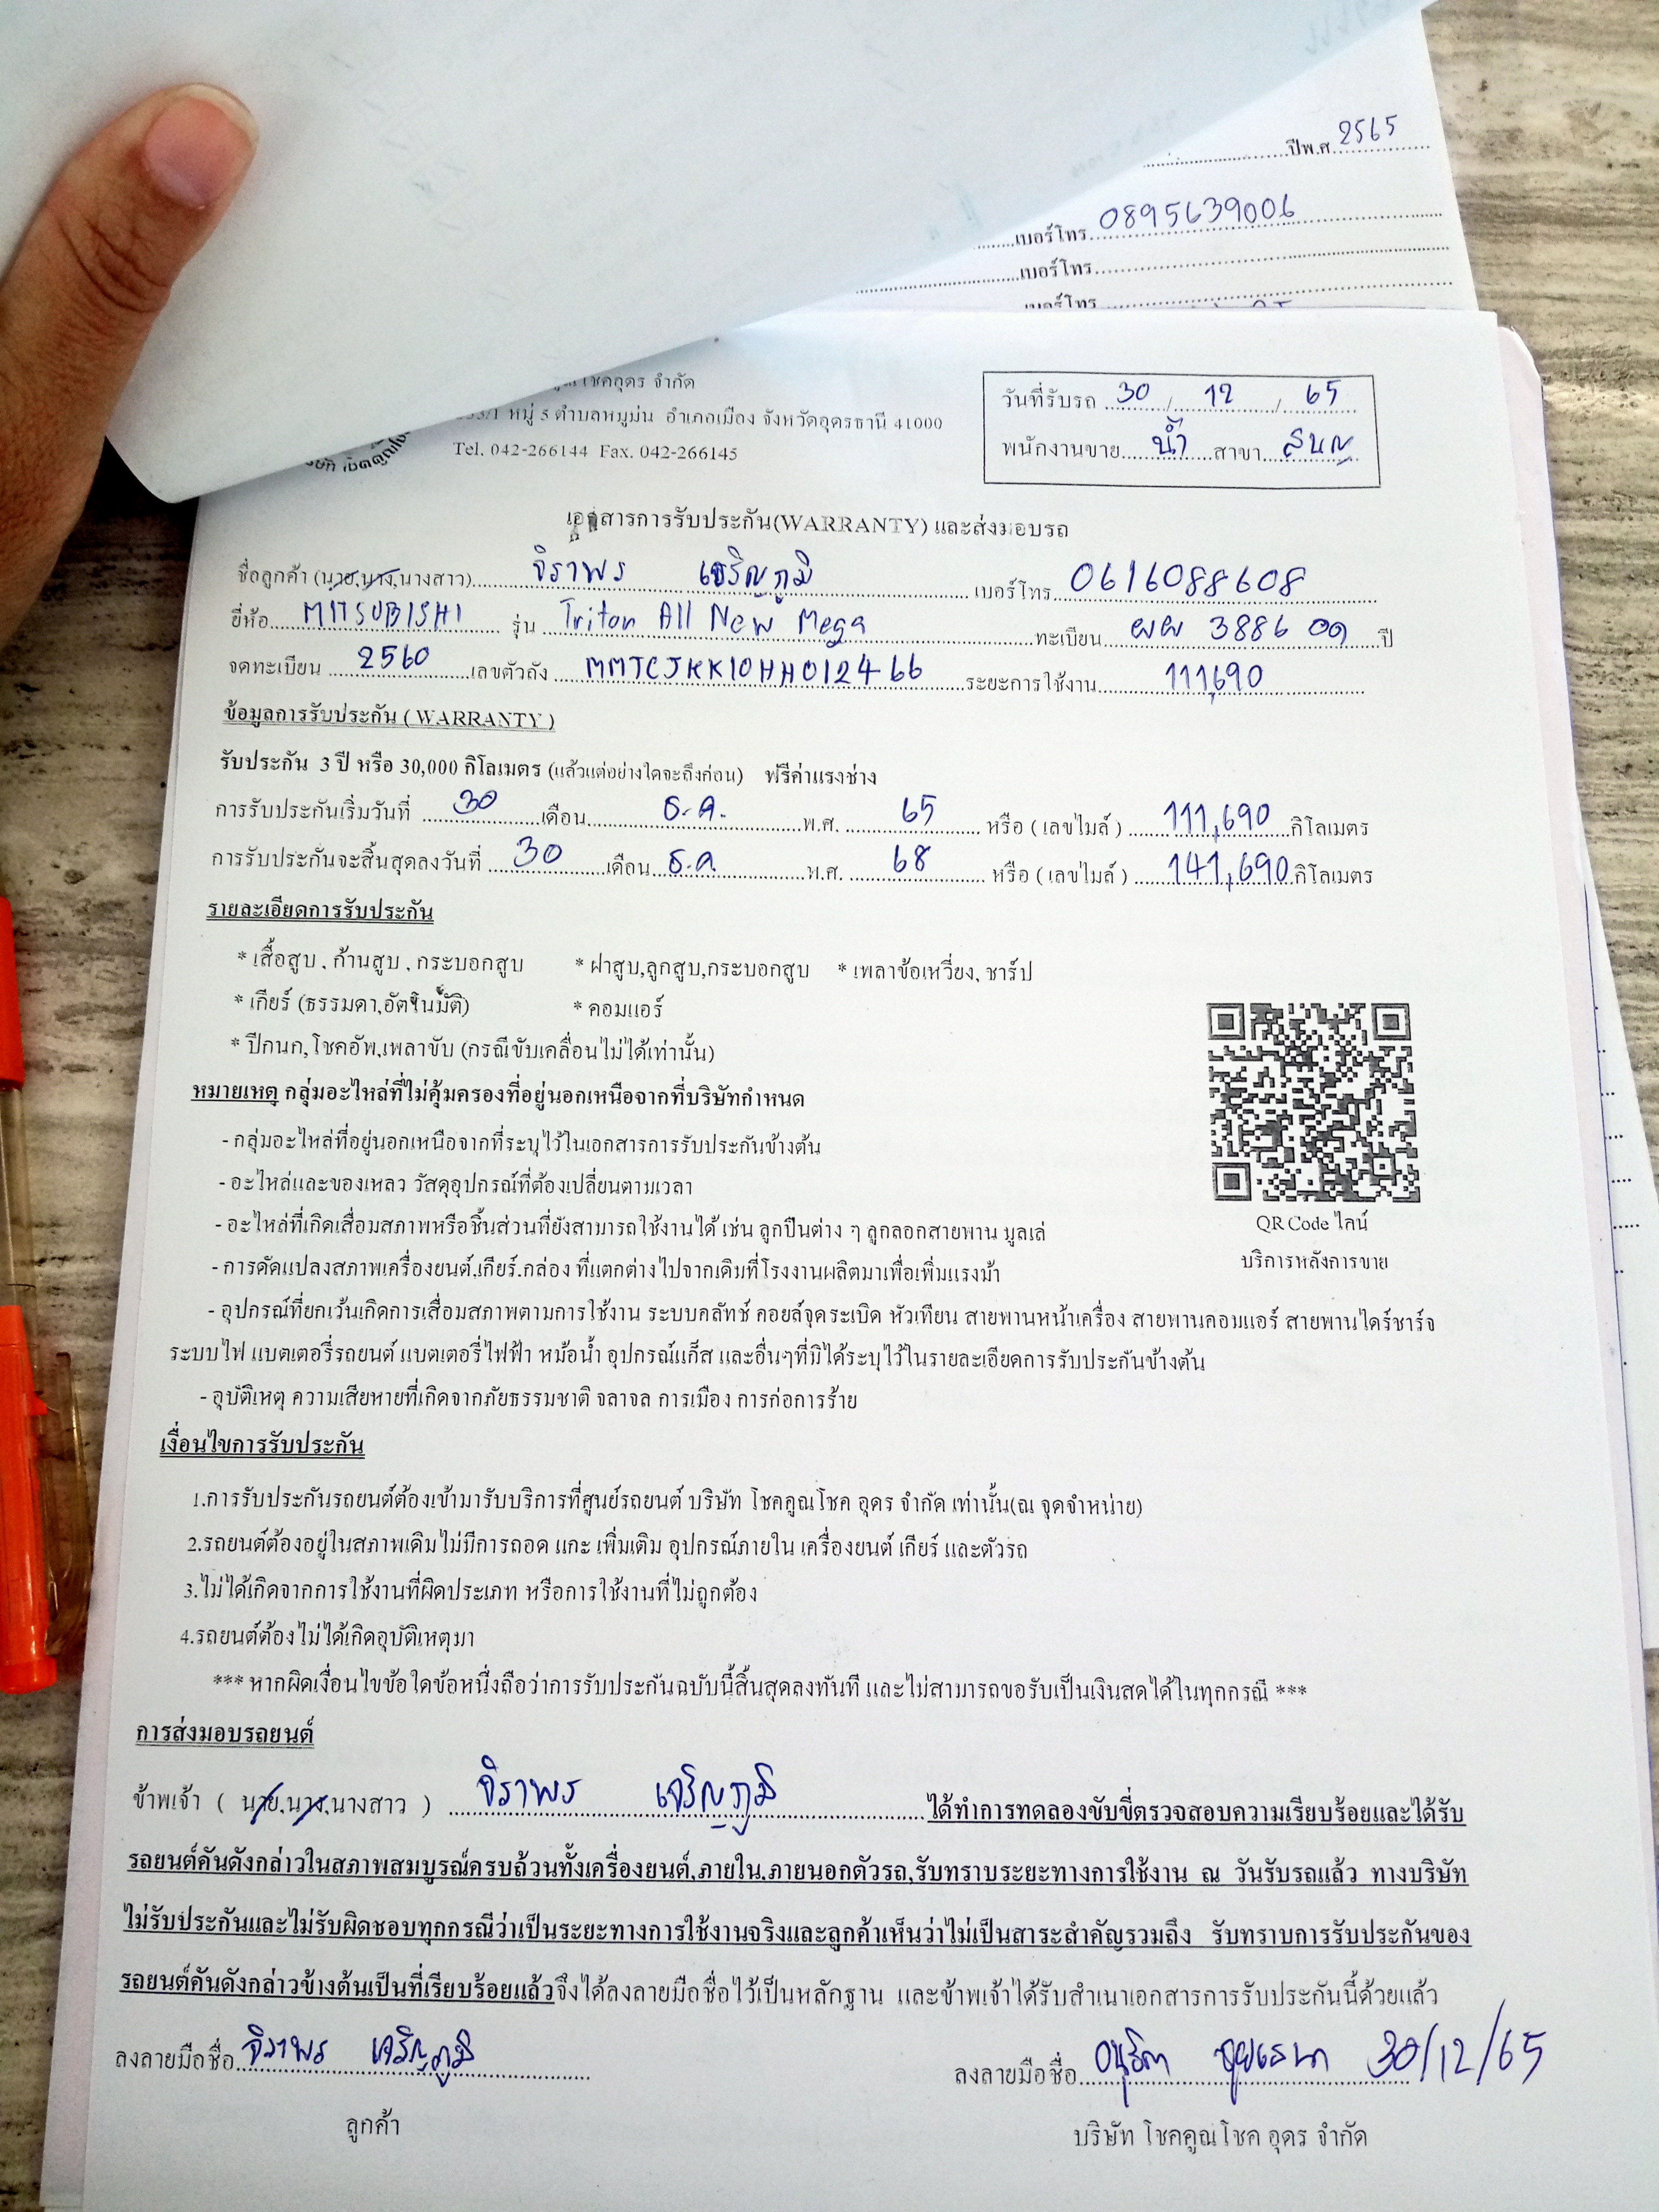 ปีพ.ศ. 2565
เบอร์โทร. 0895639006
เบอร์โทร
เบอร์โทร
โชคอุดร จำกัด
หมู่ 5 ตำบลหมูม่น อำเภอเมือง จังหวัดอุดรธานี 41000
Tel. 042-266144 Fax. 042-266145
วันที่รับรถ 30 / 12 / 65
พนักงานขาย น้ำ สาขา
เอกสารการรับประกัน(WARRANTY) และส่งมอบรถ
ชื่อลูกค้า (นาย,นาง,นางสาว) จิราพร เจริญภูมิ เบอร์โทร. 0616088608
ยี่ห้อ MITSUBISHI รุ่น Triton All New Mega ทะเบียน ผผ 3886 อด ปี
จดทะเบียน 2560 เลขตัวถัง MMTCJKK10HH012466 ระยะการใช้งาน 111,690
ข้อมูลการรับประกัน ( WARRANTY )
รับประกัน 3 ปี หรือ 30,000 กิโลเมตร (แล้วแต่อย่างใดจะถึงก่อน) ฟรีค่าแรงช่าง
การรับประกันเริ่มวันที่ 30 เดือน ธ.ค. พ.ศ. 65 หรือ ( เลขไมล์ ) 111,690 กิโลเมตร
การรับประกันจะสิ้นสุดลงวันที่ 30 เดือน ธ.ค. พ.ศ. 68 หรือ ( เลขไมล์ ) 141,690 กิโลเมตร
รายละเอียดการรับประกัน
* เสื้อสูบ , ก้านสูบ , กระบอกสูบ * ฝาสูบ,ลูกสูบ,กระบอกสูบ * เพลาข้อเหวี่ยง, ชาร์ป
* เกียร์ (ธรรมดา,อัตโนมัติ) * คอมแอร์
* ปีกนก,โชคอัพ,เพลาขับ (กรณีขับเคลื่อนไม่ได้เท่านั้น)
หมายเหตุ กลุ่มอะไหล่ที่ไม่คุ้มครองที่อยู่นอกเหนือจากที่บริษัทกำหนด
- กลุ่มอะไหล่ที่อยู่นอกเหนือจากที่ระบุไว้ในเอกสารการรับประกันข้างต้น
- อะไหล่และของเหลว วัสดุอุปกรณ์ที่ต้องเปลี่ยนตามเวลา
- อะไหล่ที่เกิดเสื่อมสภาพหรือชิ้นส่วนที่ยังสามารถใช้งานได้ เช่น ลูกปืนต่าง ๆ ลูกลอกสายพาน มูลเล่
QR Code ไลน์
บริการหลังการขาย
- การดัดแปลงสภาพเครื่องยนต์,เกียร์,กล่อง ที่แตกต่างไปจากเดิมที่โรงงานผลิตมาเพื่อเพิ่มแรงม้า
- อุปกรณ์ที่ยกเว้นเกิดการเสื่อมสภาพตามการใช้งาน ระบบคลัทช์ คอยล์จุดระเบิด หัวเทียน สายพานหน้าเครื่อง สายพานคอมแอร์ สายพานไดร์ชาร์จ
ระบบไฟ แบตเตอรี่รถยนต์ แบตเตอรี่ไฟฟ้า หม้อน้ำ อุปกรณ์แก็ส และอื่นๆที่มิได้ระบุไว้ในรายละเอียดการรับประกันข้างต้น
- อุบัติเหตุ ความเสียหายที่เกิดจากภัยธรรมชาติ จลาจล การเมือง การก่อการร้าย
เงื่อนไขการรับประกัน
1.การรับประกันรถยนต์ต้องเข้ามารับบริการที่ศูนย์รถยนต์ บริษัท โชคคูณโชค อุดร จำกัด เท่านั้น(ณ จุดจำหน่าย)
2.รถยนต์ต้องอยู่ในสภาพเดิมไม่มีการถอด แกะ เพิ่มเติม อุปกรณ์ภายใน เครื่องยนต์ เกียร์ และตัวรถ
3.ไม่ได้เกิดจากการใช้งานที่ผิดประเภท หรือการใช้งานที่ไม่ถูกต้อง
4.รถยนต์ต้องไม่ได้เกิดอุบัติเหตุมา
*** หากผิดเงื่อนไขข้อใดข้อหนึ่งถือว่าการรับประกันฉบับนี้สิ้นสุดลงทันที และไม่สามารถขอรับเป็นเงินสดได้ในทุกกรณี ***
การส่งมอบรถยนต์
ข้าพเจ้า ( นาย,นาง,นางสาว ) จิราพร เจริญภูมิ ได้ทำการทดลองขับขี่ตรวจสอบความเรียบร้อยและได้รับ
รถยนต์คันดังกล่าวในสภาพสมบูรณ์ครบถ้วนทั้งเครื่องยนต์,ภายใน,ภายนอกตัวรถ,รับทราบระยะทางการใช้งาน ณ วันรับรถแล้ว ทางบริษัท
ไม่รับประกันและไม่รับผิดชอบทุกกรณีว่าเป็นระยะทางการใช้งานจริงและลูกค้าเห็นว่าไม่เป็นสาระสำคัญรวมถึง รับทราบการรับประกันของ
รถยนต์คันดังกล่าวข้างต้นเป็นที่เรียบร้อยแล้วจึงได้ลงลายมือชื่อไว้เป็นหลักฐาน และข้าพเจ้าได้รับสำเนาเอกสารการรับประกันนี้ด้วยแล้ว
ลงลายมือชื่อ จิราพร เจริญภูมิ ลงลายมือชื่อ 30/12/65
ลูกค้า บริษัท โชคคูณโชค อุดร จำกัด